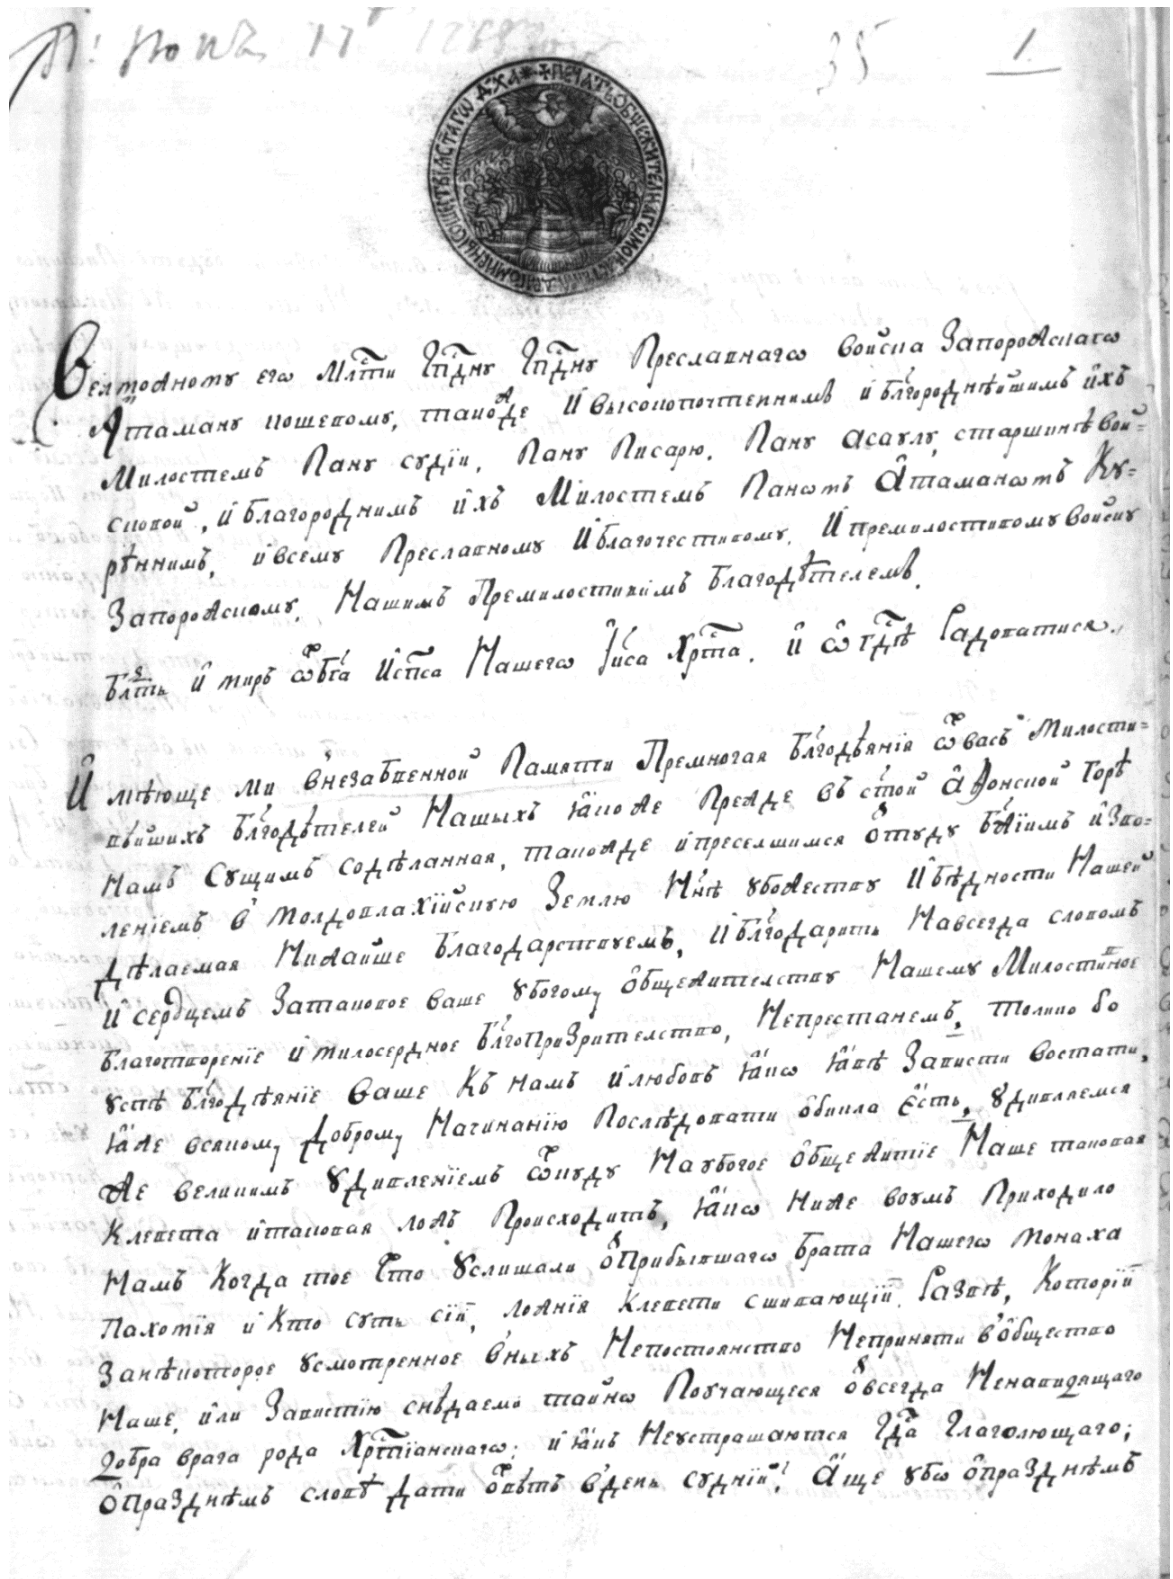 П: ноыв. 17 1768 году
35
1.
✝ПЕЧАТЬ ОБЩЕЖИТЕЛНАГѠ МОН
СТАГѠ ДХА
Велможному егѡ Млсти Гпдну Гпдну Преславнагѡ войска Запорожскагѡ
Атаману кошевому, такожде и высокопочтеннимъ и блгороднѣйшимъ ихъ
Милостемъ Пану судіи, Пану Писарю, Пану асаулу, старшинѣ вой=
сковой, и благороднимъ ихъ Милостемъ Паномъ Атаманомъ Ку=
рѣннимъ, и всему Преславному и благочестивому, и премилостивому войску
Запорожскому, Нашимъ Премилостивимъ благодѣтелемъ.
Блгть и миръ ѿ Бга и Спса Нашегѡ Іиса Хрста, и ѡ Гдѣ Радоватися.
Имѣюще ми в незабвенной Памяти Премногая блгодѣянія ѿ васъ милости=
вѣйшихъ блгодѣтелей Нашыхъ якоже прежде въ стой Аѳонской Горѣ
Намъ Сущимъ содѣланная, такожде и преселшимся ѿтуду бжіимъ изво=
леніемъ в Молдовлахійскую Землю Ннѣ убожеству и бѣдности Нашей
дѣлаемая Нижайше благодарствуемъ, и блгодарить Навсегда словомъ
и сердцемъ За таковое ваше убогому общежителству Нашему Милостивное
благотвореніе и милосердное блгопризрителство, Непрестанемъ, толико бо
успѣ блгодѣяніе ваше къ намъ и любовь якѡ явѣ Зависти востати,
яже всякому доброму Начинанію Послѣдовати обикла есть, удивляемся
же великимъ удивленіемъ ѿкуду На убогое общежитіе Наше таковая
клевета и таковая ложъ Происходитъ, якѡ ниже во умъ Приходило
Намъ когда тое что услишали ѿ прибывшагѡ брата Нашегѡ монаха
Пахомія и кто суть сіи, ложнія клевети сшивающіи. Развѣ, которіи
За нѣкоторое усмотренное в ныхъ Непостоянство Неприняти в общество
Наше, или Завистію снѣдаеми тайнѡ Поучающеся ѿ всегда Ненавидящаго
добра врага рода Хрстіанскагѡ; и якъ Неустрашаются Гда Глаголющаго;
о празднѣмъ словѣ дати ѿвѣтъ в день судніи? Аще убѡ о праздѣмъ